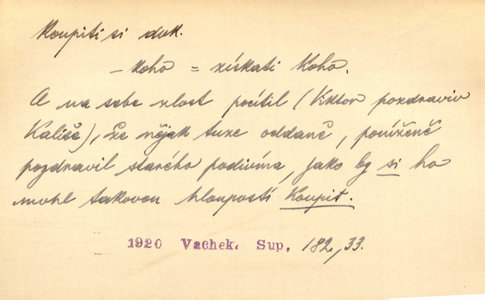 Koupiti si dok.
— koho = získati koho.
A na sebe zlost pocítil (Viktor pozdraviv
Kališe), že nějak tuze oddaně, poníženě
pozdravil starého podivína, jako by si ho
mohl takovou hloupostí koupit.
1920 Vachek. Sup, 182,33.